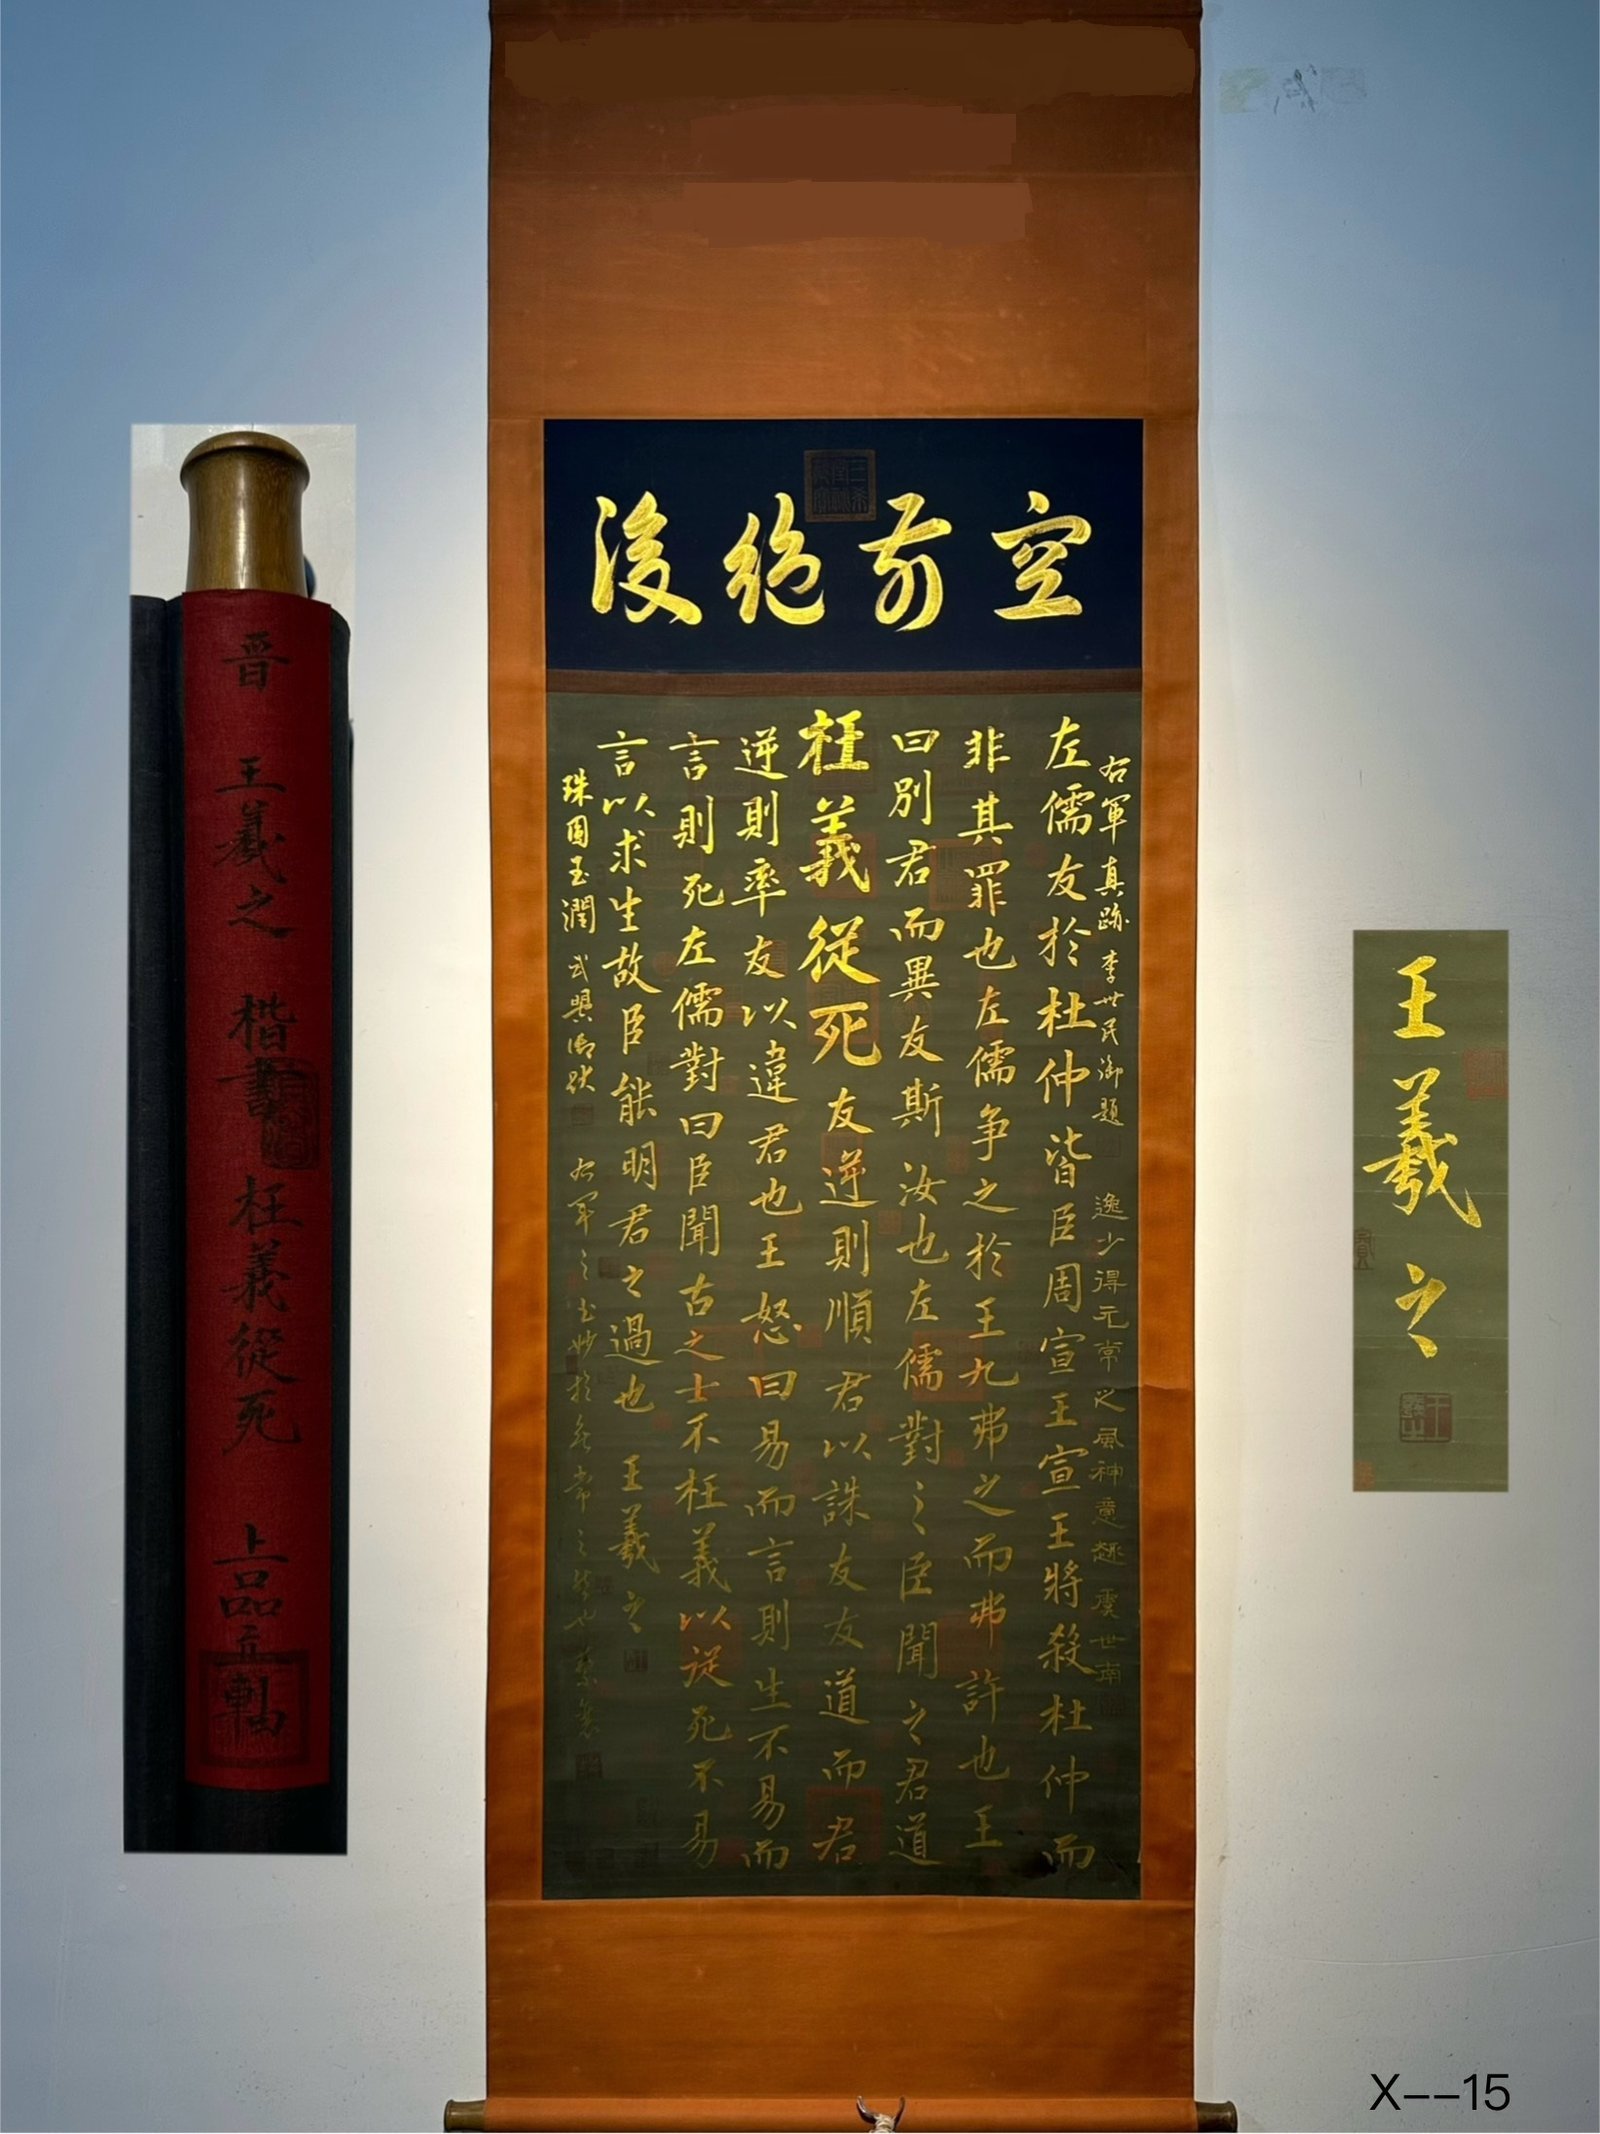 空前絕後
右軍真跡 李世民御題
逸少得元常之風神意趣 虞世南
左儒友於杜仲皆臣周宣王宣王將殺杜仲而
非其罪也左儒争之於王九弗之而弗許也王
曰別君而異友斯汝也左儒對之臣聞之君道
枉義從死友逆則順君以誅友友道而君
逆則率友以違君也王怒曰易而言則生不易而
言則死左儒對曰臣聞古之士不枉義以從死不易
言以求生故臣能明君之過也 王羲之
珠圓玉潤
右軍之書妙於
晋 王羲之 楷書 枉義從死 上品立軸
王羲之
X--15